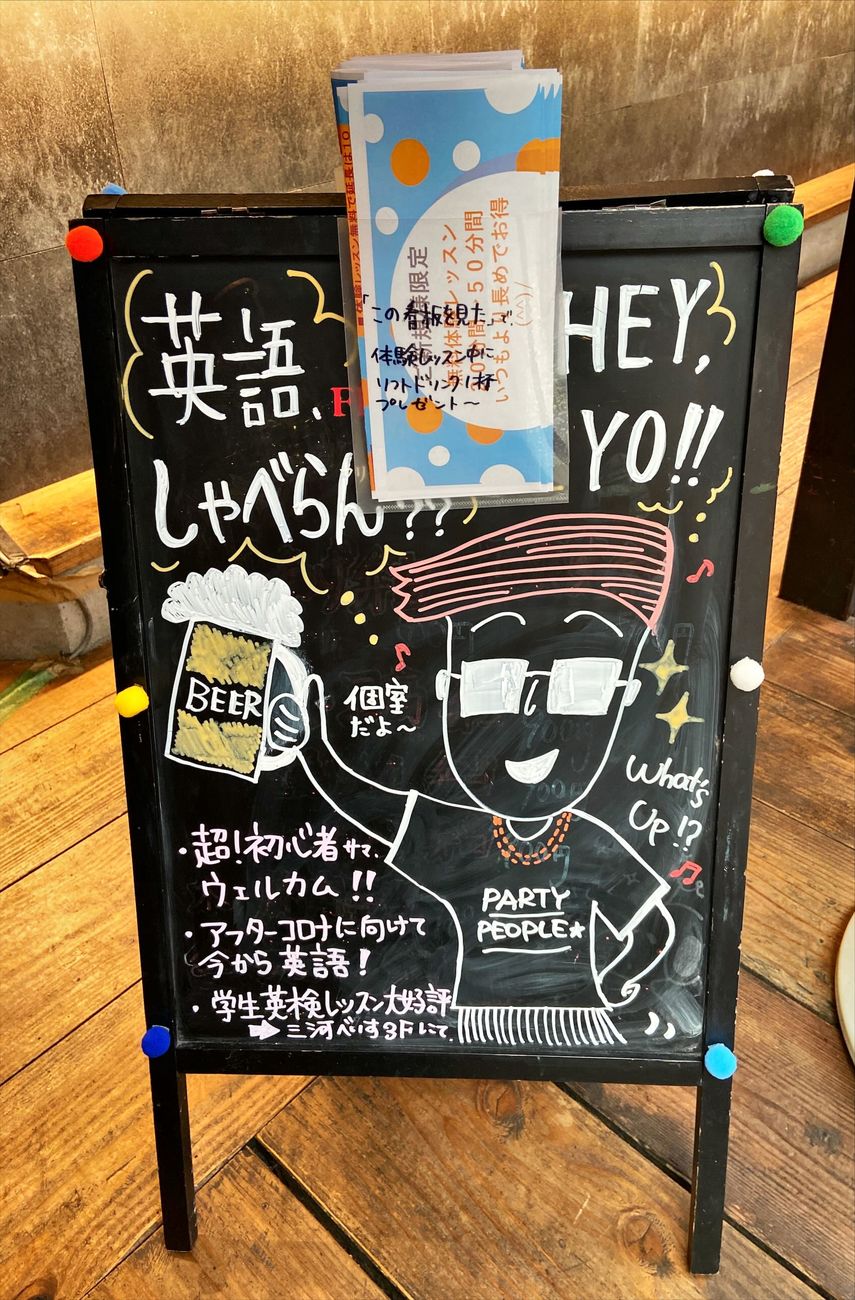 英語、
しゃべらん??
HEY,
YO!!
「この看板を見た」で、
体験レッスン中に
ソフトドリンク1杯
プレゼント〜
限定
レッスン
50分間
いつもより長めでお得
(^^)/
BEER
個室
だよ〜
What's
Up!?
PARTY
PEOPLE★
・超!初心者サマ、
ウェルカム!!
・アフターコロナに向けて
今から英語!
・学生英検レッスン大好評
➡三河べいす3Fにて